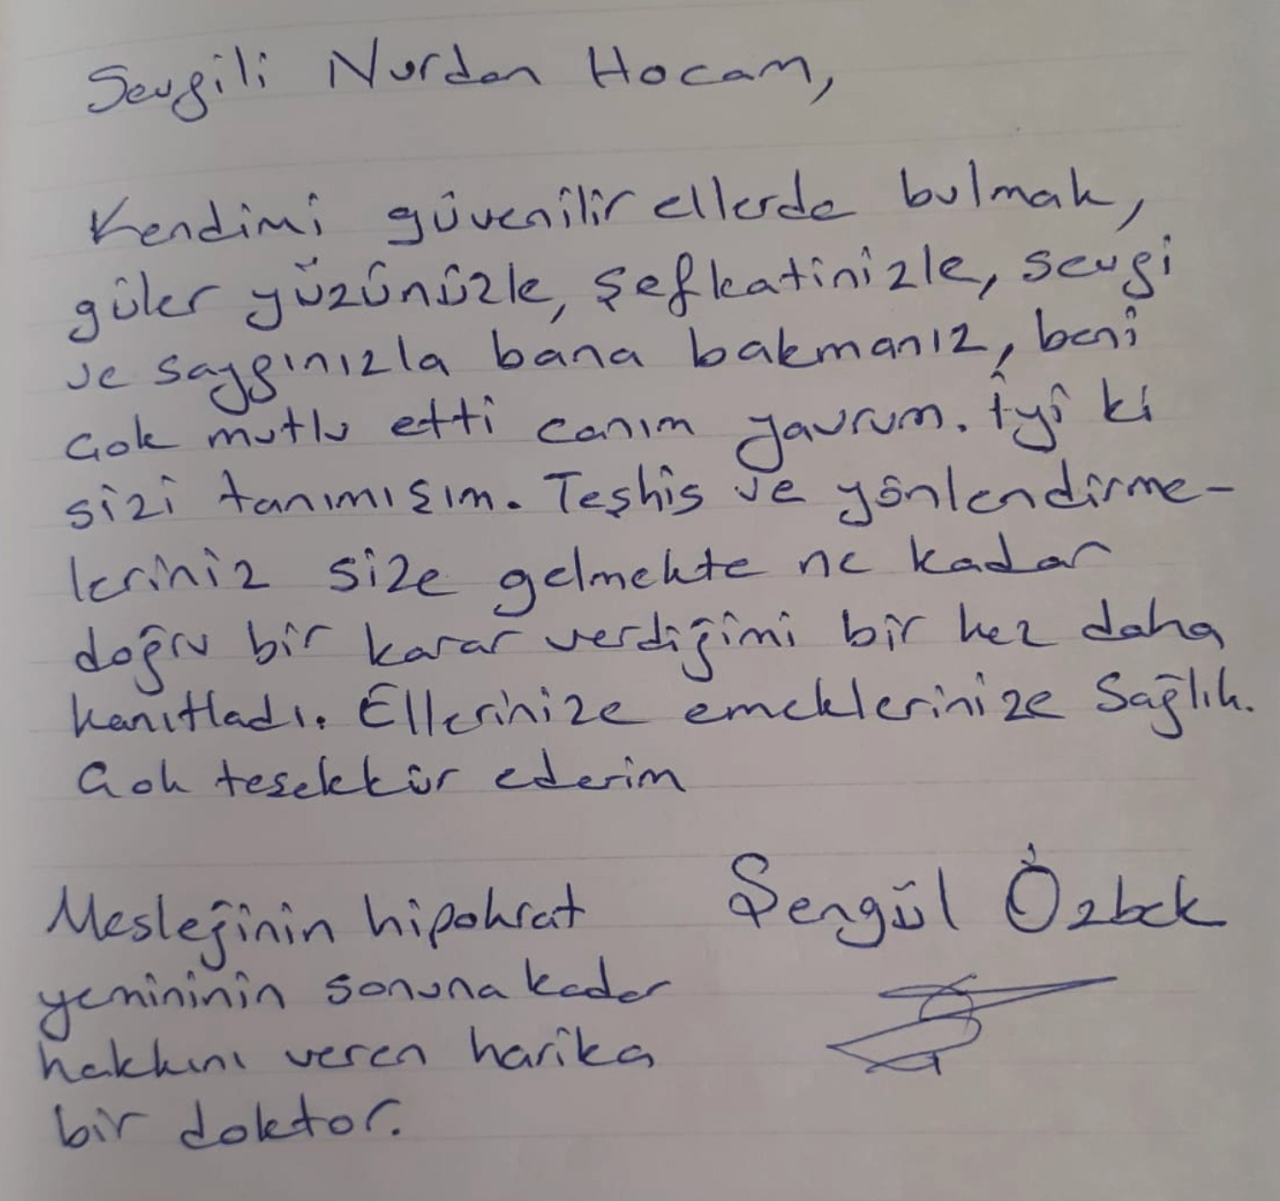 Sevgili Nurdan Hocam,
Kendimi güvenilir ellerde bulmak,
güler yüzünüzle, şefkatinizle, sevgi
ve saygınızla bana bakmanız, beni
çok mutlu etti canım yavrum. İyi ki
sizi tanımışım. Teşhis ve yönlendirme-
leriniz size gelmekte ne kadar
doğru bir karar verdiğimi bir kez daha
kanıtladı. Ellerinize emeklerinize Sağlık.
Çok teşekkür ederim
Şengül Özbek
Mesleğinin hipokrat
yemininin sonuna kadar
hakkını veren harika
bir doktor.